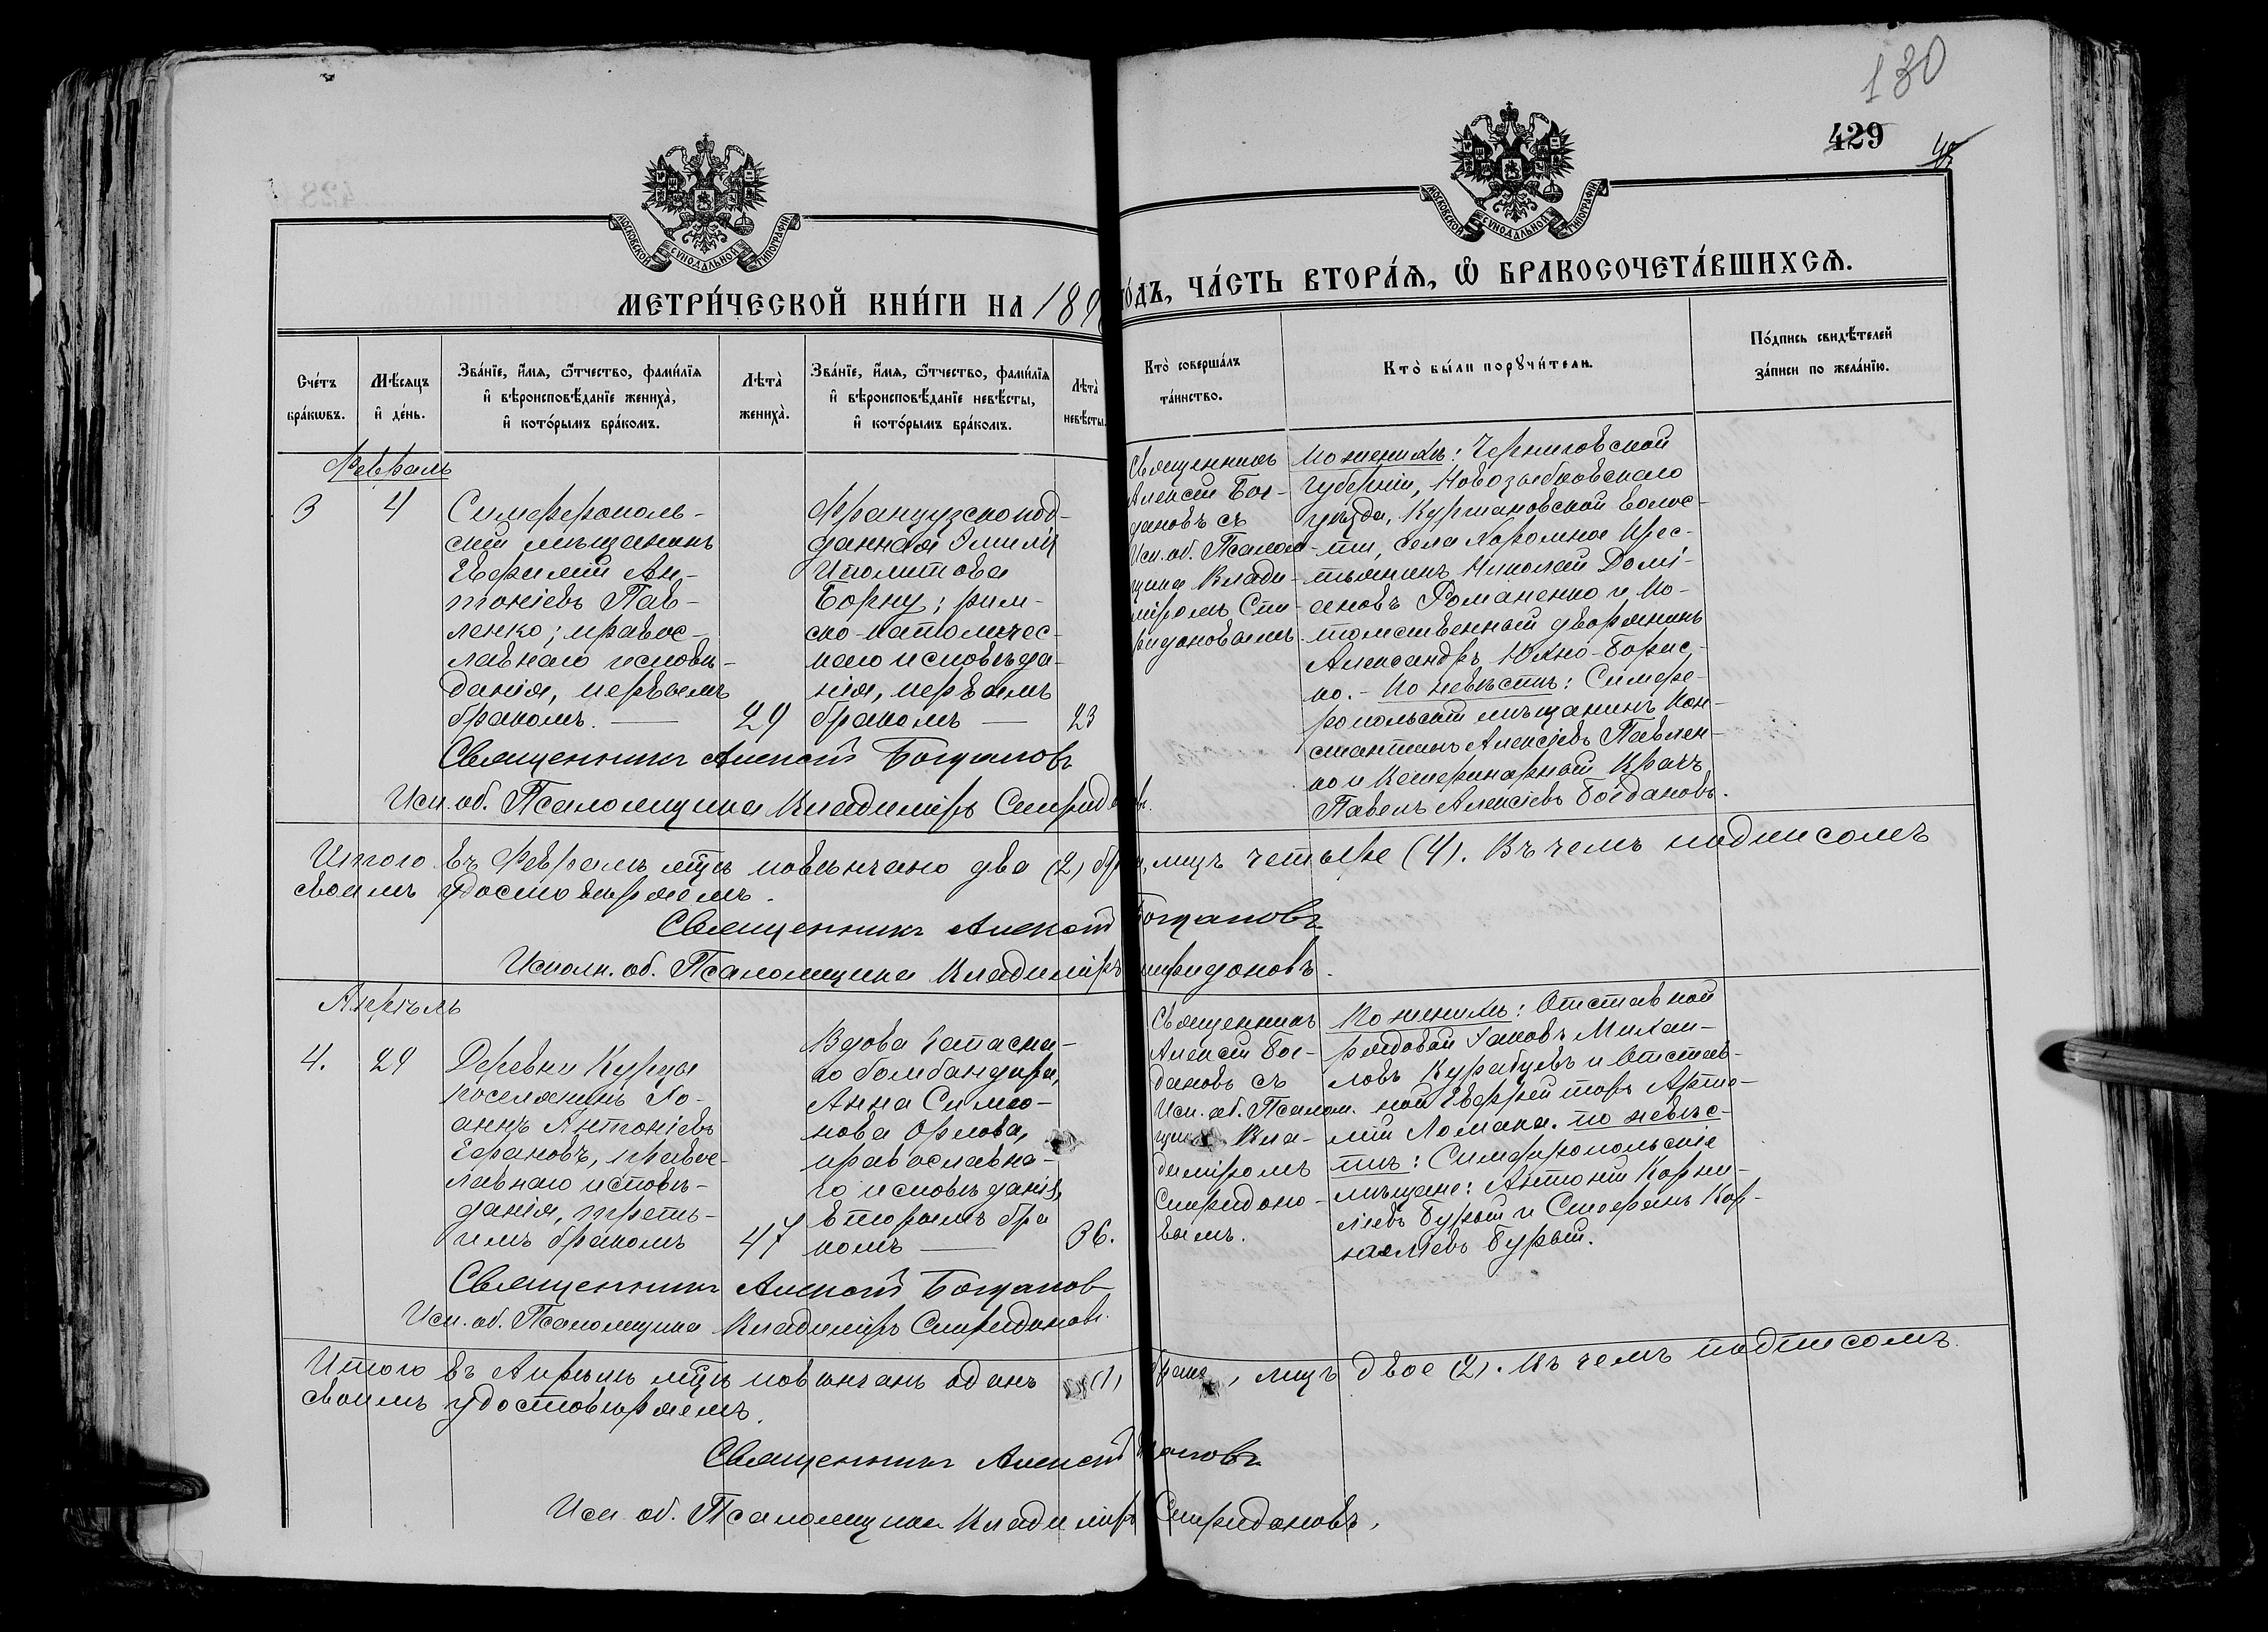 130
429
МОСКОВСКОЙ СѴНОДАЛЬНОЙ ТИПОГРАФІИ
МОСКОВСКОЙ СѴНОДАЛЬНОЙ ТИПОГРАФІИ
МЕТРИ́ЧЕСКОЙ КНИ́ГИ НА 189
О́ДЪ, ЧА́СТЬ ВТОРА́Я, Ѽ БРАКОСОЧЕТА́ВШИХСѦ.
Сче́тъ
бра́кѡвъ.
Мѣ́сяцъ
и҆ де́нь.
Зва́нїе, и҆́мя, ѻ҆́тчество, фами́лїя
и҆ вѣроисповѣ́данїе жениха̀,
и҆ кото́рымъ бра́комъ.
Лѣта̀
жениха̀.
Зва́нїе, и҆́мя, ѻ҆́тчество, фами́лїя
и҆ вѣроисповѣ́данїе невѣ́сты,
и҆ кото́рымъ бра́комъ.
Лѣта̀
невѣ́сты.
Кто̀ соверша́лъ
та́инство.
Кто̀ бы́ли порꙋчи́тели.
По́дпись свидѣ́телей
за́писи по жела́нїю.
Февраль
3
4
Симферополь-
скій мѣщанинъ
Евфимій Ан-
тоніевъ Пав-
ленко; правос-
лавнаго исповѣ-
данія, первымъ
бракомъ. —
29
Французскопод-
данная Эмилія
Иполитова
Борну; рим-
ско-католичес-
каго исповѣда-
нія, первымъ
бракомъ —
23
Священникъ
Алексій Бог-
дановъ съ
Исп. об. Псалом-
щика Влади-
міромъ Спи-
ридоновымъ.
По женихѣ: Черниговской
губерніи, Новозыбковскаго
уѣзда, Куршановской волос-
ти, села Хоромное Крес-
тьянинъ Николай Домі-
ановъ Романенко и По-
томственный дворянинъ
Александръ Юхно-Борис-
ко. - По невѣстѣ: Симфе-
ропольскій мѣщанинъ Кон-
стантинъ Алексіевъ Павлен-
ко и Ветеринарный Врачъ
Павелъ Алексіевъ Богдановъ.
Священникъ Алексій Богдановъ
Исп. об. Псаломщика Владиміръ Спиридоновъ.
Итого въ Февралѣ мѣцѣ повѣнчано два (2) бр, лицъ четыре (4). Въ чемъ подписомъ
своимъ удостовѣряемъ.
Священникъ Алексій Богдановъ
Исполн. об. Псаломщика Владиміръ Спиридоновъ.
Апрѣль
4.
29
Деревни Курцы
поселянинъ Іо-
аннъ Антоніевъ
Ефановъ, правос-
лавнаго исповѣ-
данія, треть-
имъ бракомъ
47
Вдова Запасна-
го бомбандира,
Анна Симео-
нова Орлова,
православна-
го исповѣданія,
вторымъ бра
комъ —
36.
Священникъ
Алексій Бог-
дановъ съ
Исп. об. Псалом.
щика Вла-
диміромъ
Спиридоно-
вымъ.
По женихѣ: Отставной
рядовой Іаковъ Михаи-
ловъ Курабцевъ и Отстав-
ной Ефрейторъ Арте-
мій Ломака. по невѣс-
тѣ: Симферопольскіе
мѣщане: Антоній Корни-
ліевъ Бурый и Стефанъ Кор-
наліевъ Бурый.
Священникъ Алексій Богданов
Исп. об. Псаломщика Владиміръ Спиридоновъ.
Итого въ Апрѣлѣ мѣцѣ повѣнчанъ одинъ (1) бракъ, лицъ двое (2). Въ чемъ подписомъ
своимъ удостовѣряемъ.
Священникъ Алексій Богдановъ
Исп. об. Псаломщика Владиміръ Спиридоновъ.